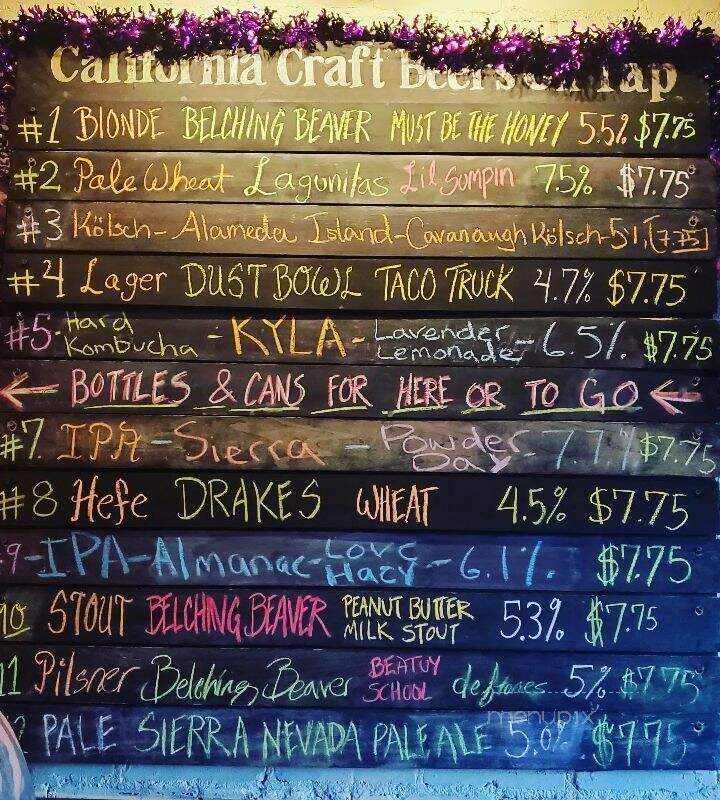 California Craft Beers On Tap
#1 BLONDE BELCHING BEAVER MUST BE THE HONEY 5.5% $7.75
#2 Pale Wheat Lagunitas Lil Sumpin 7.5% $7.75
#3 Kölsch - Alameda Island - Cavanaugh Kölsch - 5.1% 7.75
#4 Lager DUST BOWL TACO TRUCK 4.7% $7.75
#5. Hard Kombucha - KYLA - Lavender Lemonade - 6.5% $7.75
← BOTTLES & CANS FOR HERE OR TO GO ←
#7. IPA - Sierra - Powder Day - 7.7% $7.75
#8 Hefe DRAKES WHEAT 4.5% $7.75
9 - IPA - Almanac - Love Hazy - 6.1% $7.75
10 STOUT BELCHING BEAVER PEANUT BUTTER MILK STOUT 5.3% $7.75
11 Pilsner Belching Beaver BEATUY SCHOOL deftones 5% $7.75
PALE SIERRA NEVADA PALE ALE 5.0% $7.75
menupix